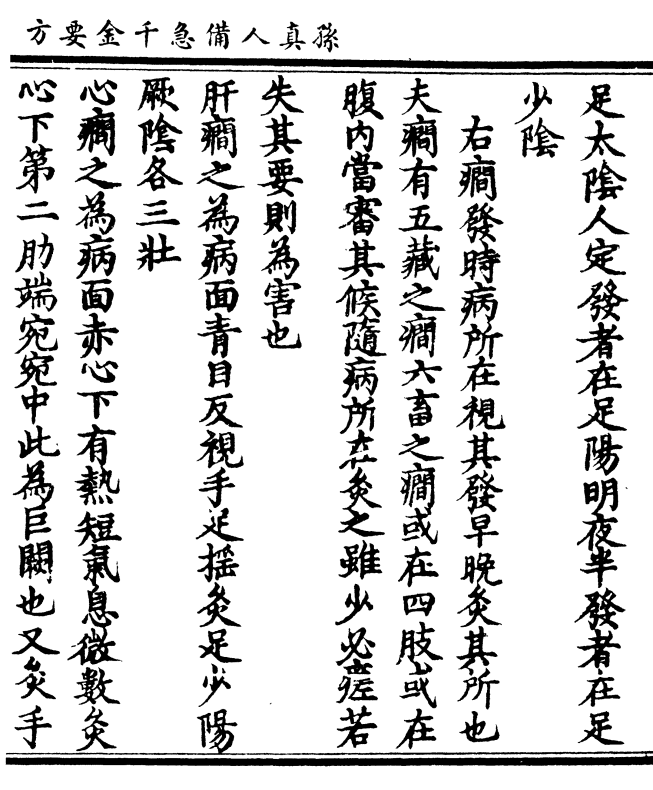 孫真人備急千金要方
足太陰人定發者在足陽明夜半發者在足
少陰
右癇發時病所在視其發早晚灸其所也
夫癇有五藏之癇六畜之癇或在四肢或在
腹内當審其候隨病所在灸之雖少必瘥若
失其要則為害也
肝癇之為病面青目反視手足揺灸足少陽
厥陰各三壯
心癇之為病面赤心下有熱短氣息微數灸
心下第二肋端宛宛中此為巨闕也又灸手